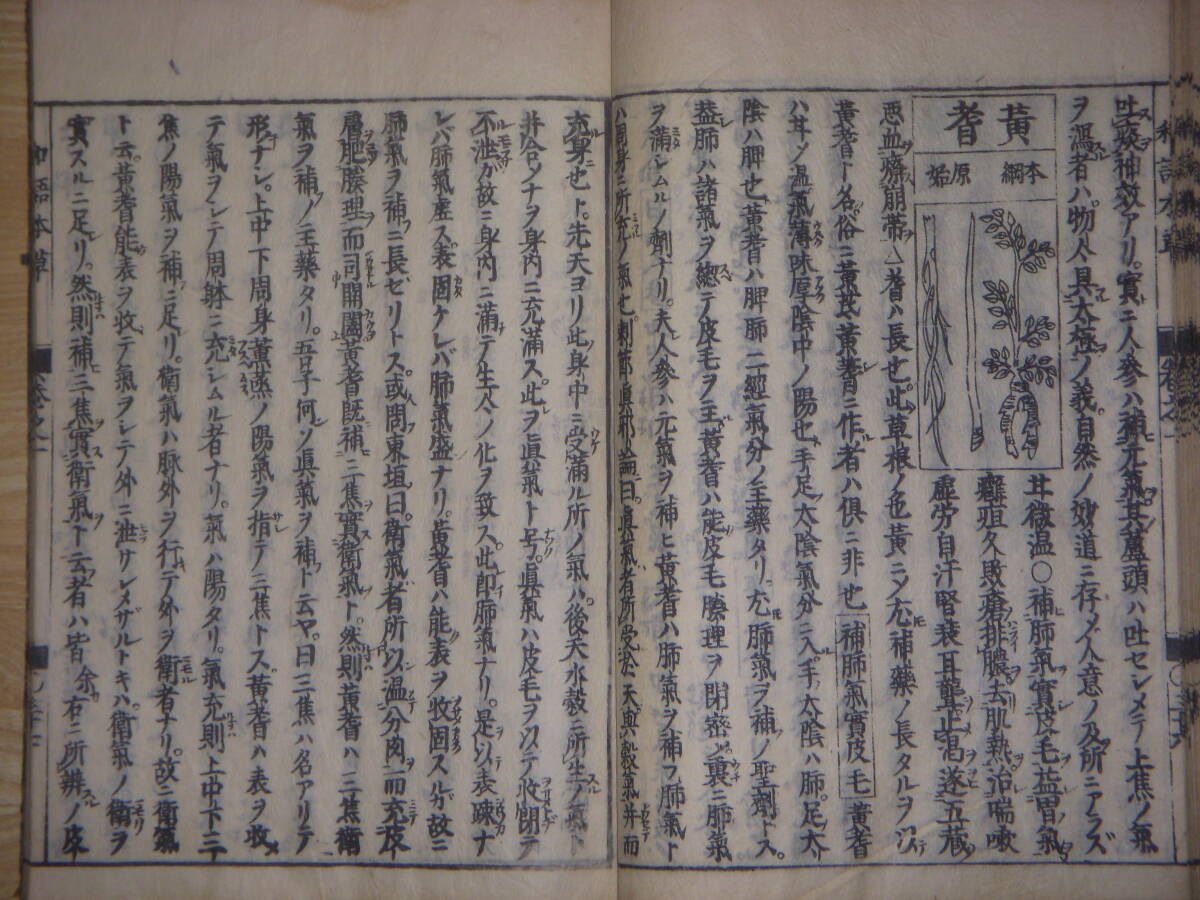 吐痰神效アリ。實ニ人參ハ補元氣其蘆頭ハ吐セシメテ上焦ノ氣
ヲ瀉者ハ。物々具太極ノ義。自然ノ妙道ニ存メ人意ノ及所ニアラズ
黃耆
本綱
原始
甘微溫○補肺氣實皮毛益胃氣
癰疽久敗瘡排膿去肌熱治喘嗽
虛勞自汗腎衰耳聾止渴逐五藏
惡血癥崩帶△耆ハ長也。此草根ノ色黃ニメ充補藥ノ長タルヲ以テ
黃耆ト名俗ニ黃芪黃蓍ニ作者ハ俱ニ非也 補肺氣實皮毛 黃耆
ハ甘メ溫氣薄味厚陰中ノ陽也手足ノ太陰氣分ニ入。手ノ太陰ハ肺。足ノ太
陰ハ脾也黃耆ハ脾肺二經氣分ノ主藥タリ尤肺氣ヲ補ノ聖劑トス。
益肺ハ諸氣ヲ總テ皮毛ヲ主黃耆ハ能皮毛腠理ヲ閉密メ裏ニ肺氣
ヲ滿シムルノ劑ナリ。夫人參ハ元氣ヲ補ヒ黃耆ハ肺氣ヲ補フ肺氣ト
ハ周身ニ所充ノ氣也刺節眞邪論曰。眞氣者所受於天與穀氣并而
充身也ト。先天ヨリ此身中ニ受滿ル所ノ氣ハ。後天水穀ニ所生ノ氣ト
并合メナヲ身内ニ充滿ス。此ヲ眞氣ト号。眞氣ハ皮毛ヲ以テ收閉テ
不泄故ニ身内ニ滿テ生々ノ化ヲ致ス。此即肺氣ナリ。是以表疎ナ
レバ肺氣虛ス表固ケレバ肺氣盛ナリ。黃耆ハ能表ヲ收固スルガ故ニ
肺氣ヲ補フニ長セリトス。或問東垣曰。衛氣者所以溫分肉而充皮
層肥腠理而司開闔黃耆既補三焦實衛氣ト。然則黃耆ハ三焦衛
氣ヲ補ノ主藥タリ。吾子何ソ眞氣ヲ補ト云ヤ。曰三焦ハ名アリテ
形ナシ。上中下周身薰蒸ノ陽氣ヲ指テ三焦トス黃耆ハ表ヲ收
テ氣ヲシテ周躰ニ充シムル者ナリ。氣ハ陽タリ。氣充則上中下三
焦ノ陽氣ヲ補ニ足リ。衛氣ハ脉外ヲ行テ外ヲ衛者ナリ。故ニ衛氣
ト云。黃耆能表ヲ收テ氣ヲシテ外ニ泄サレメザルトキハ。衛氣ノ衛ヲ
實スルニ足リ。然則補三焦實衛氣ト云者ハ皆余右ニ所辨ノ皮
和語本草